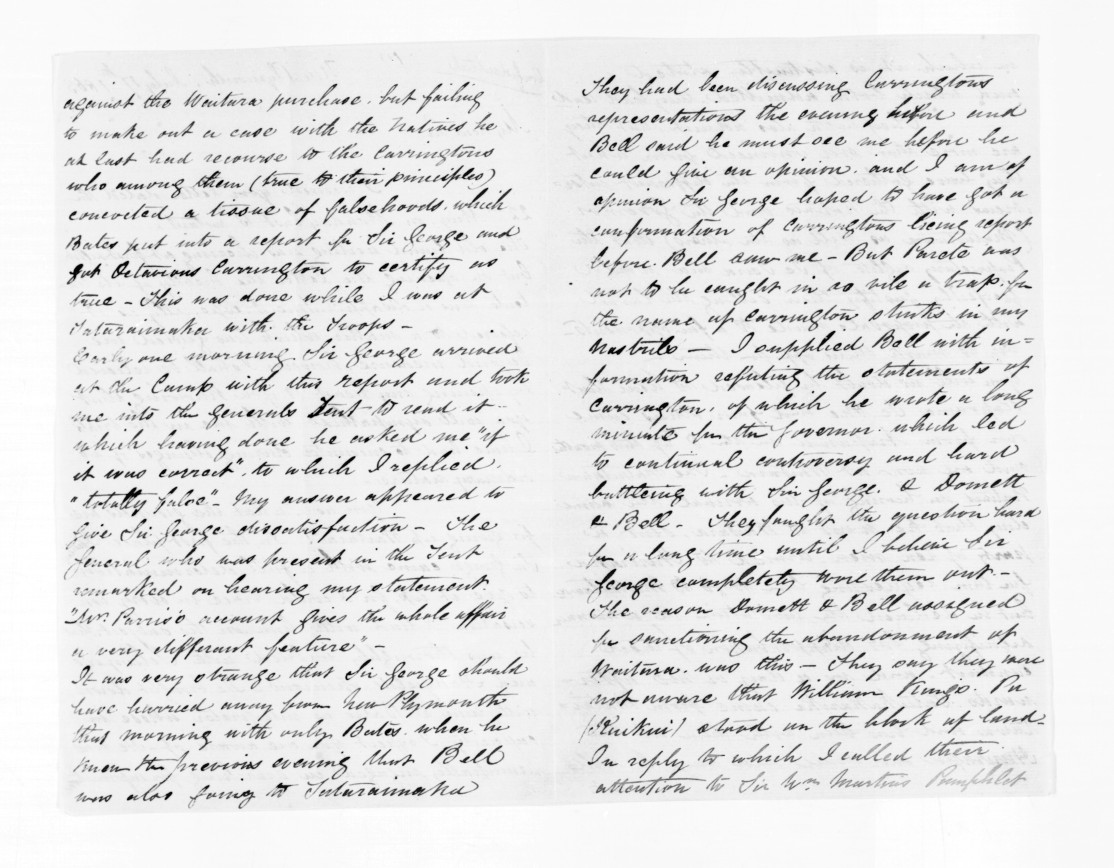 against the Waitara purchase. but failing
to make out a case with the Natives he
at last had recourse to the Carringtons
who among them (true to their principles)
concocted a tissue of falsehoods. which
Bates put into a report for Sir George and
got Octavious Carrington to certify as
true – This was done while I was at
Tataraimaka with the Troops –
Early one morning Sir George arrived
at the Camp with this report and took
me into the Generals Tent to read it –
which having done he asked me "if
it was correct", to which I replied.
"totally false". My answer appeared to
give Sir George dissatisfaction – The
General who was present in the Tent
remarked on hearing my statement.
"Mr. Parris's account gives the whole affair
a very different feature" –
It was very strange that Sir George should
have hurried away from New Plymouth
that morning with only Bates. when he
knew the previous evening that Bell
was also going to Tataraimaka
They had been discussing Carringtons
representations the evening before and
Bell said he must see me before he
could give an opinion. and I am of
opinion Sir George hoped to have got a
confirmation of Carringtons lieing report
before. Bell saw me – But Parete was
not to be caught in so vile a trap. for
the name of Carrington stinks in my
Nastrils – I supplied Bell with in=
formation refuting the statements of
Carrington. of which he wrote a long
minute for the Governor. which led
to continual controversy and hard
battleing with Sir George. & Domett
& Bell – They fought the question hard
for a long time until I believe Sir
George completely wore them out –
The reason Domett & Bell assigned
for sanctioning the abandonment of
Waitara. was this – They say they were
not aware that William Kings. Pa
(Kuikui) stood on the block of land –
In reply to which I called their
attention to Sir Wm Martins Pamphlet